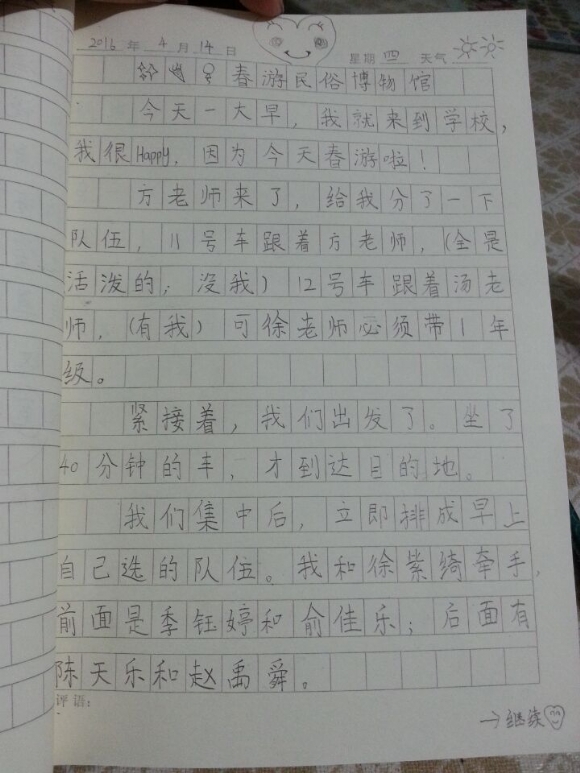 2016 年 4 月 14 日 星期 四 天气
春游民俗博物馆
今天一大早，我就来到学校，
我很Happy，因为今天春游啦！
方老师来了，给我分了一下
队伍，11号车跟着方老师，(全是
活泼的；没我) 12号车跟着汤老
师，(有我) 可徐老师必须带1年
级。
紧接着，我们出发了。坐了
40分钟的车，才到达目的地。
我们集中后，立即排成早上
自己选的队伍。我和徐紫绮牵手，
前面是季钰婷和俞佳乐；后面有
陈天乐和赵禹舜。
评语：
→继续